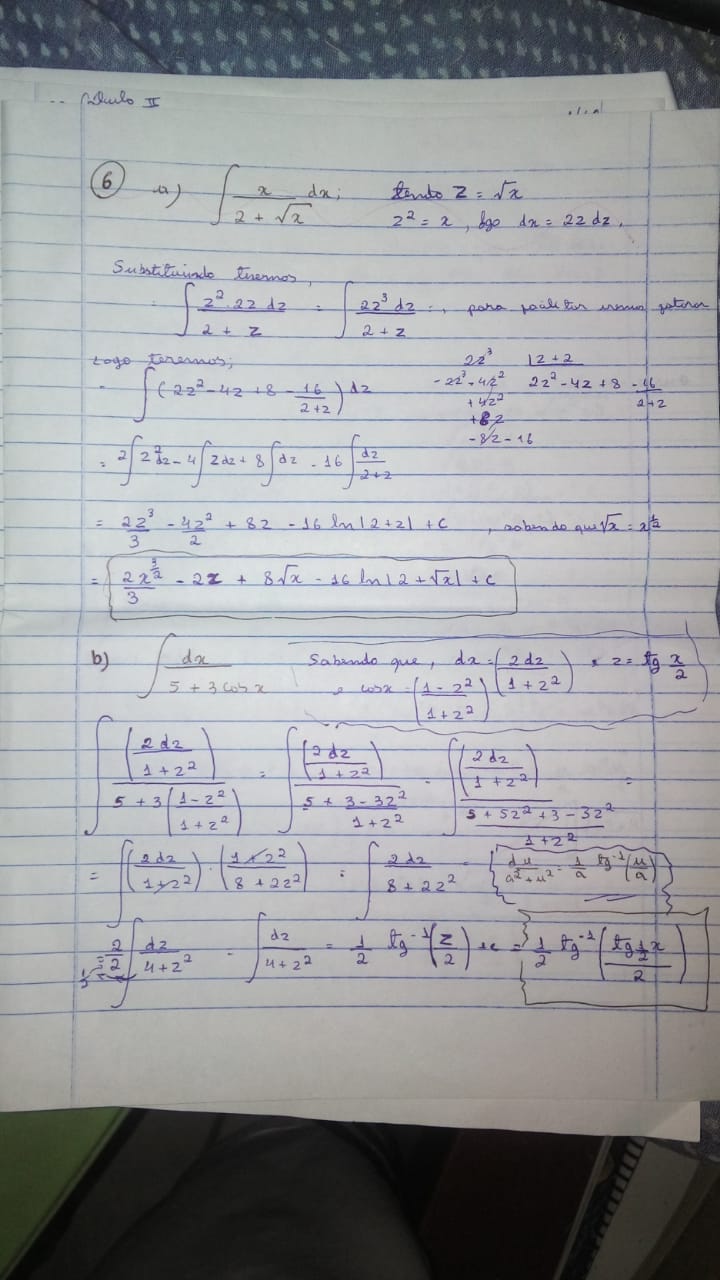 Cálculo II
6 a) ∫ x/(2 + √x) dx; tendo z = √x
z² = x, logo dx = 2z dz.
Substituindo teremos,
= ∫ z².2z dz/(2 + z) = ∫ 2z³ dz/(2 + z) =, para facilitar iremos fatorar
Logo teremos; 2z³ |z+2
= ∫ (2z² - 4z + 8 - 16/(2+z)) dz -2z³-4z² 2z² - 4z + 8 - 16/(2+z)
+4z²
+8z
-8z-16
= 2∫z² dz - 4∫z dz + 8∫dz - 16∫dz/(2+z)
= 2z³/3 - 4z²/2 + 8z - 16 ln|2+z| + c, sabendo que √x = x^½
= 2x^(3/2)/3 - 2x + 8√x - 16 ln|2 + √x| + c
b) ∫ dx/(5 + 3 cos x) Sabendo que, dx = (2dz/(1+z²)) z = tg x/2
e cosx = (1-z²/(1+z²))
∫ (2dz/(1+z²))/(5 + 3(1-z²/(1+z²))) = ∫ (2dz/(1+z²))/(5 + (3-3z²)/(1+z²)) = ∫ (2dz/(1+z²))/((5+5z²+3-3z²)/(1+z²)) =
= ∫ (2dz/(1+z²)) . (1+z²/(8+2z²)) = ∫ 2dz/(8+2z²) = du/(a²+u²) = 1/a tg⁻¹(u/a)
2/2 ∫ dz/(4+z²) = ∫ dz/(4+z²) = 1/2 tg⁻¹(z/2) + c = 1/2 tg⁻¹(tg ½x/2)